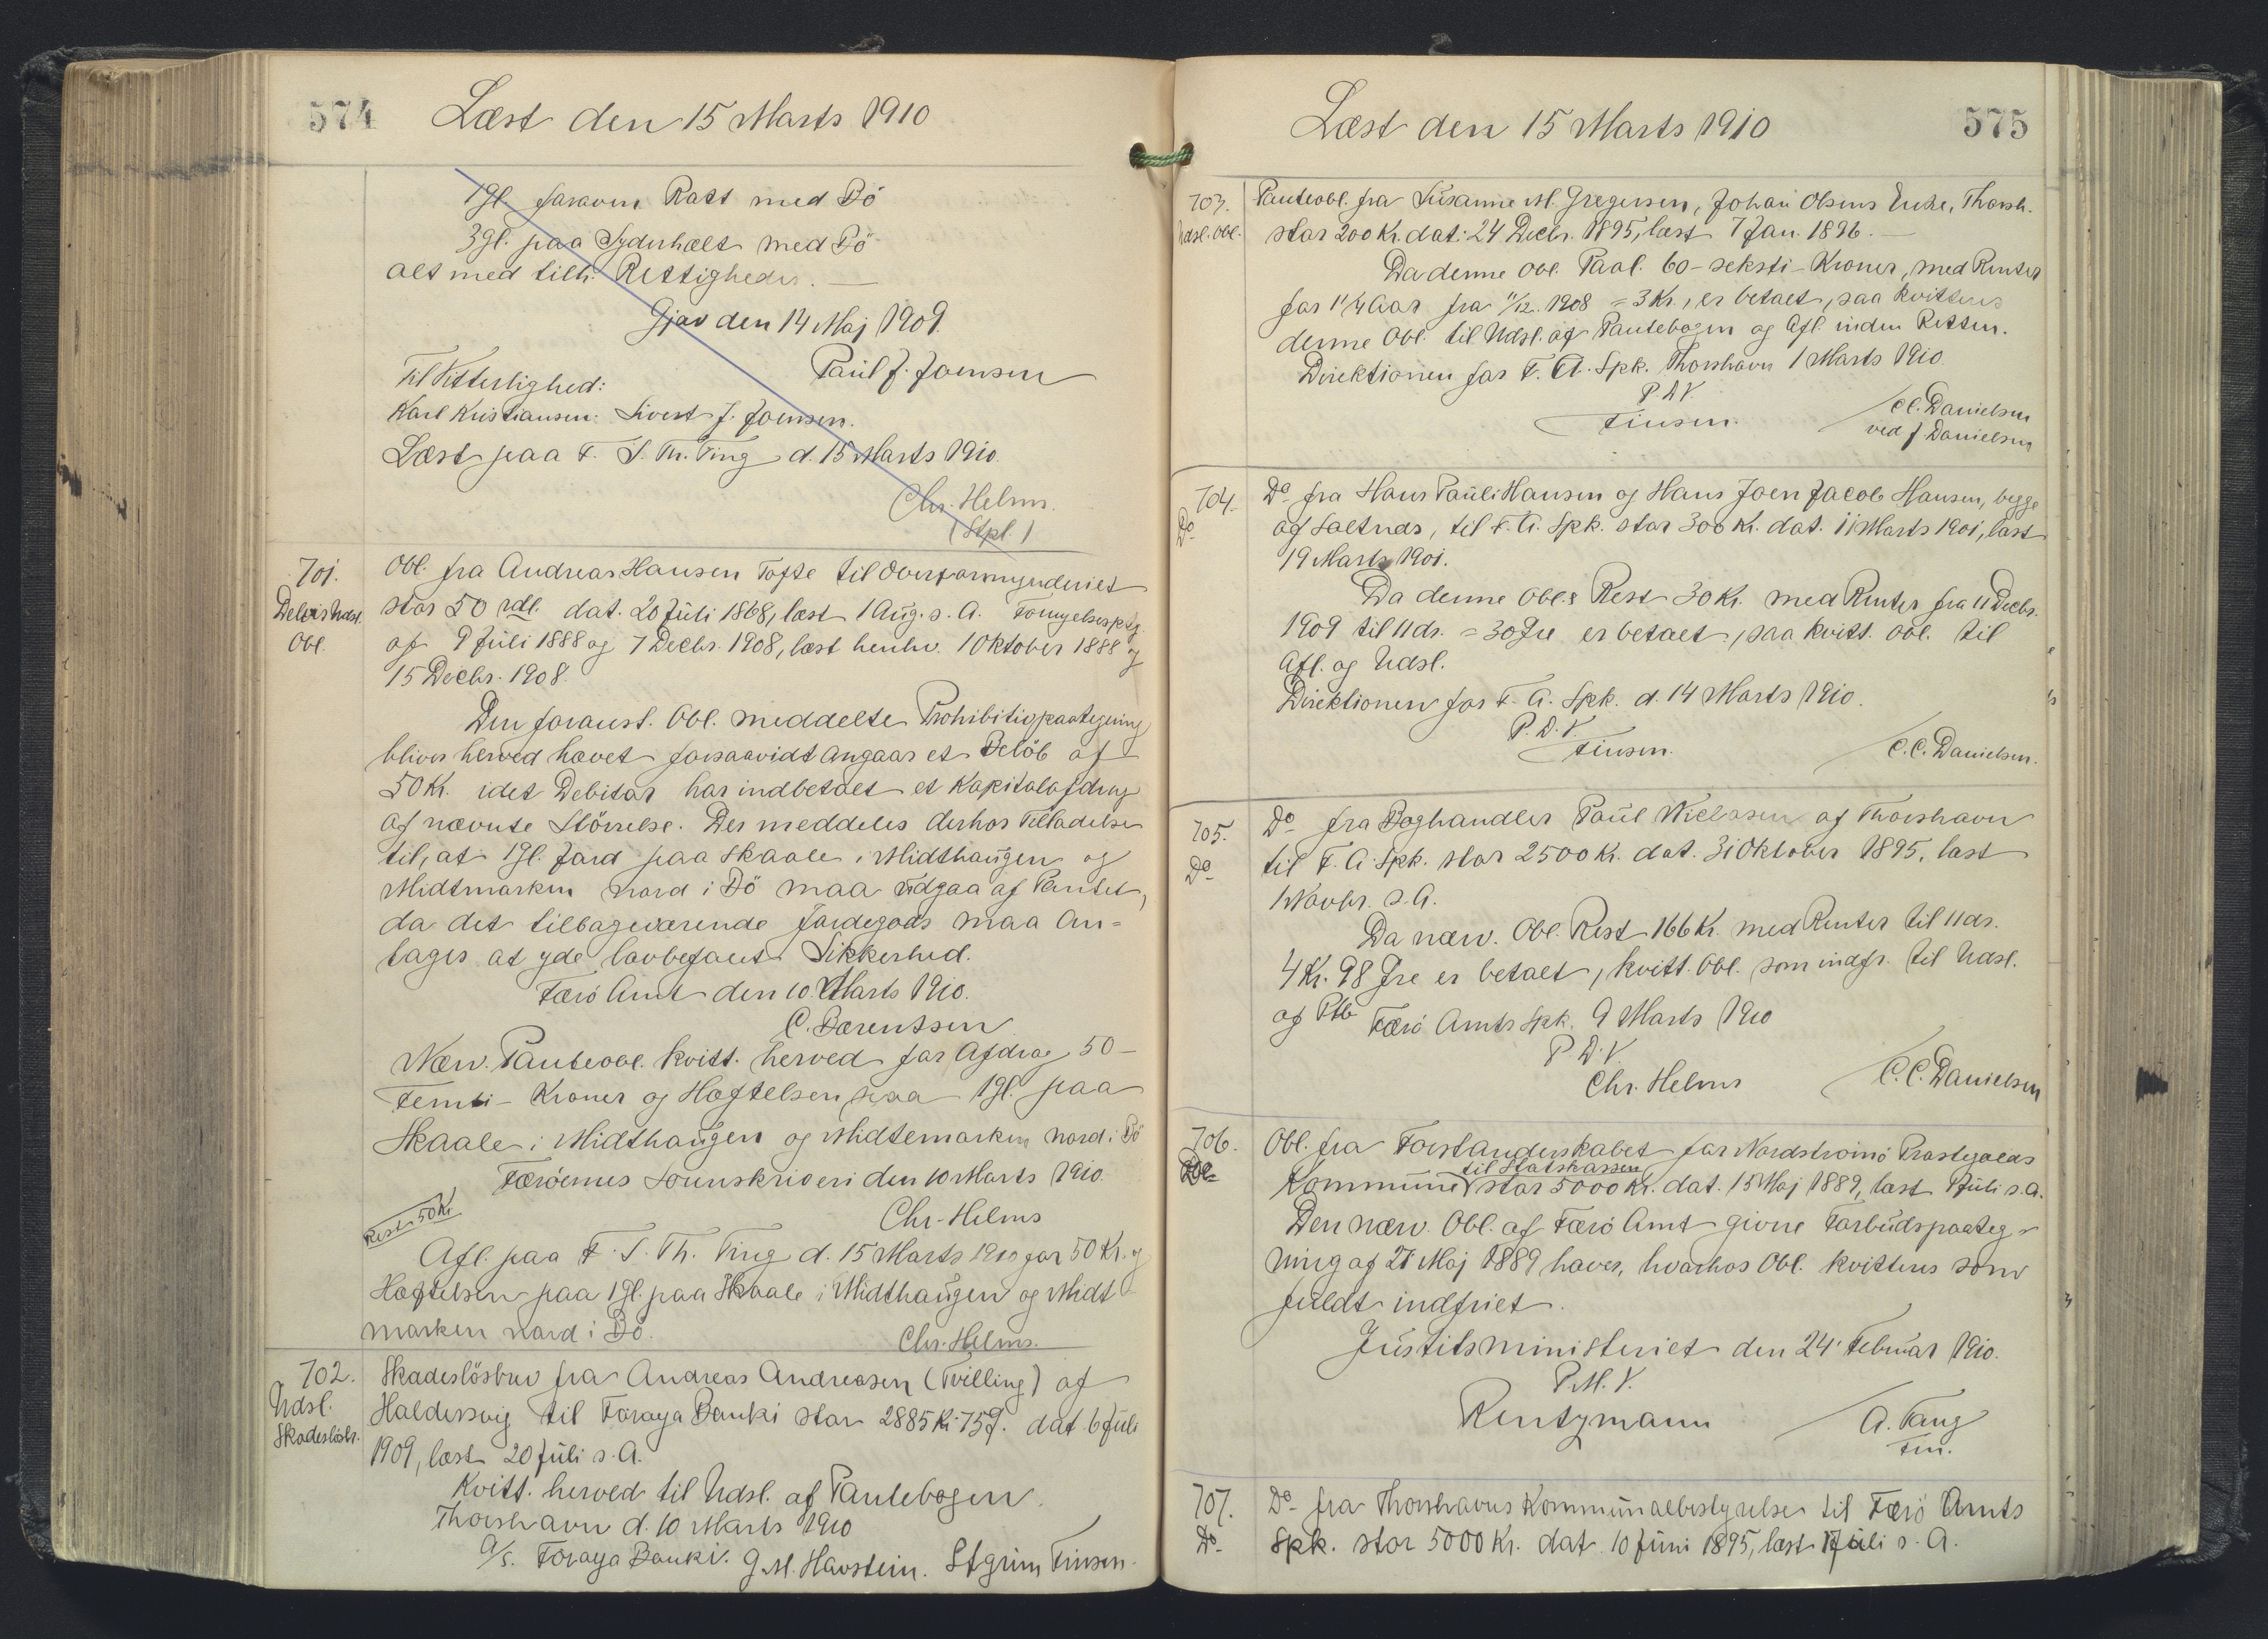 574
Læst den 15 Marts 1910
1gl. foraven Rætt med Bö
3gl. paa Syderhælt med Bö
alt med tilh. Rettigheder.
Gjov den 14 Maj 1909.
Paül J. Joensen
Til Vitterlighed:
Karl Kristiansen. Sivert J. Joensen.
Læst paa F. S. Th. Ting d. 15 Marts 1910.
Chr. Helms.
(Stpl.)
701.
Delvis Udsl.
Obl.
Obl. fra Andreas Hansen Tofte til Overformynderiet
stor 50 rdl. dat. 20 Jüli 1868, læst 1 Aug. s. A. Fornyelsesptg
af 9 Jüli 1888 og 7 Decbr. 1908, læst henhv. 1 Oktober 1888 og
15 Decbr. 1908.
Den foranst. Obl. meddelte Prohibitivpaategning
bliver herved hævet forsaavidt angaar et Beløb af
50 Kr. idet Debitor har indbetalt et Kapitalafdrag
af nævnte Störrelse. Der meddeles derhos Tilladelse
til, at 1gl. Jord paa Skaale i Midthaügen og
Midtmarken nord i Bö maa üdgaa af Pantet,
da det tilbageværende Jordegods maa an-
tages at yde lovbefalet Sikkerhed.
Færö Amt den 10 Marts 1910.
C. Bærentsen
Næv. Panteobl. kvitt. herved for Afdrag 50 -
Femti - Kroner og Hæftelsen paa 1gl. paa
Skaale i Midthaügen og Midtemarken nord i Bö
Færöernes Sorenskriveri den 10 Marts 1910.
Rest 50 Kr
Chr. Helms
Afl. paa F. S. Th. Ting d. 15 Marts 1910 for 50 Kr. og
Hæftelsen paa 1gl. paa Skaale i Midthaügen og Midt-
marken nord i Bö.
Chr. Helms.
702.
Udsl.
Skadeslösbr.
Skadeslösbrev fra Andreas Andreasen (Tvilling) af
Haldersvig til Föroya Banki stor 2885 Kr. 75 Ø. dat 6 Jüli
1909, læst 20 Jüli s. A.
Kvitt. herved til Udsl. af Pantebogen.
Thorshavn d. 10 Marts 1910
A/S. Föroya Banki. J. M. Havstein. Stgrim Finsen.
Læst den 15 Marts 1910
575
703.
Udsl. Obl.
Panteobl. fra Süsanne M. Gregersen, Johan Olsens Enke, Thorsh.
stor 200 Kr. dat. 24 Decbr. 1895, læst 7 Jan. 1896.
Da denne Obl. Paal. 60 - seksti - Kroner, med Renter
for 1 1/4 Aar fra 11/12. 1908 = 3 Kr., er betalt, saa kvitteres
denne Obl. til Udsl. af Pantebogen og Afl. inden Retten.
Direktionen for F. A. Spk. Thorshavn 1 Marts 1910
P. D. V.
Finsen.
C. C. Danielsen
ved J Danielsen
704.
Do
Do fra Hans Paüli Hansen og Hans Joen Jacob Hansen, begge
af Saltnæs, til F. A. Spk. stor 300 Kr. dat. 11 Marts 1901, læst
19 Marts 1901.
Da denne Obl.s Rest 30 Kr. med Renter fra 11 Decbr.
1909 til 11 ds. = 30 Øre er betalt, saa kvitt. Obl. til
Afl. og Udsl.
Direktionen for F. A. Spk. d. 14 Marts 1910.
P. D. V.
Finsen.
C. C. Danielsen.
705.
Do
Do fra Boghandler Paül Niclasen af Thorshavn
til F. A. Spk. stor 2500 Kr. dat. 31 Oktober 1895, læst
1 Novbr. s. A.
Da næv. Obl. Rest 166 Kr. med Renter til 11 ds.
4 Kr. 98 Øre er betalt, kvitt. Obl. som indfr. til Udsl.
af Ptb
Færö Amts Spk. 9 Marts 1910
P. D. V.
Chr. Helms
C. C. Danielsen
706.
Obl. fra Forstanderskabet for Nordströmö Præstegælds
til Statskassen
Kommüne stor 5000 Kr. dat. 15 Maj 1889, læst 1 Jüli s. A.
Den næv. Obl. af Færö Amt givne Forbüdspaateg-
ning af 27 Maj 1889 hæves, hvorhos Obl. kvitteres som
füldt indfriet.
Jüstitsministeriet den 24 Febrüar 1910.
P. M. V.
Rentzmann
A. Fang
Fm.
707.
Do
Do fra Thorshavns Kommünalbestyrelse til Færö Amts
Spk. stor 5000 Kr. dat. 10 Jüni 1895, læst 1 Jüli s. A.